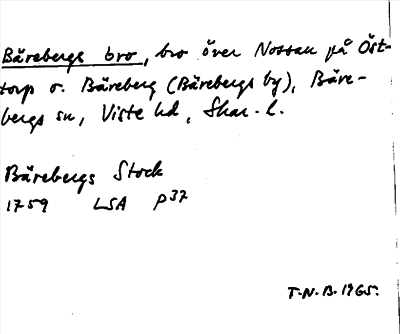 Bärebergs bro, bro över Nossan på Öst-
torp o. Bäreberg (Bärebergs by), Bäre-
bergs sn, Viste hd, Skar. l.
Bärebergs Stock
1759 LSA P37
T.N.B. 1965.